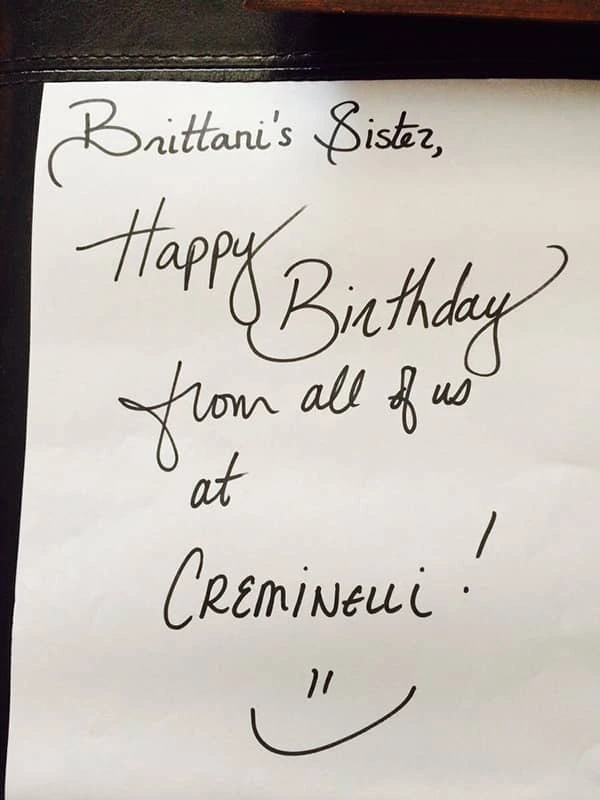 Brittani's Sister,
Happy
Birthday
from all of us
at
CREMINELLI!